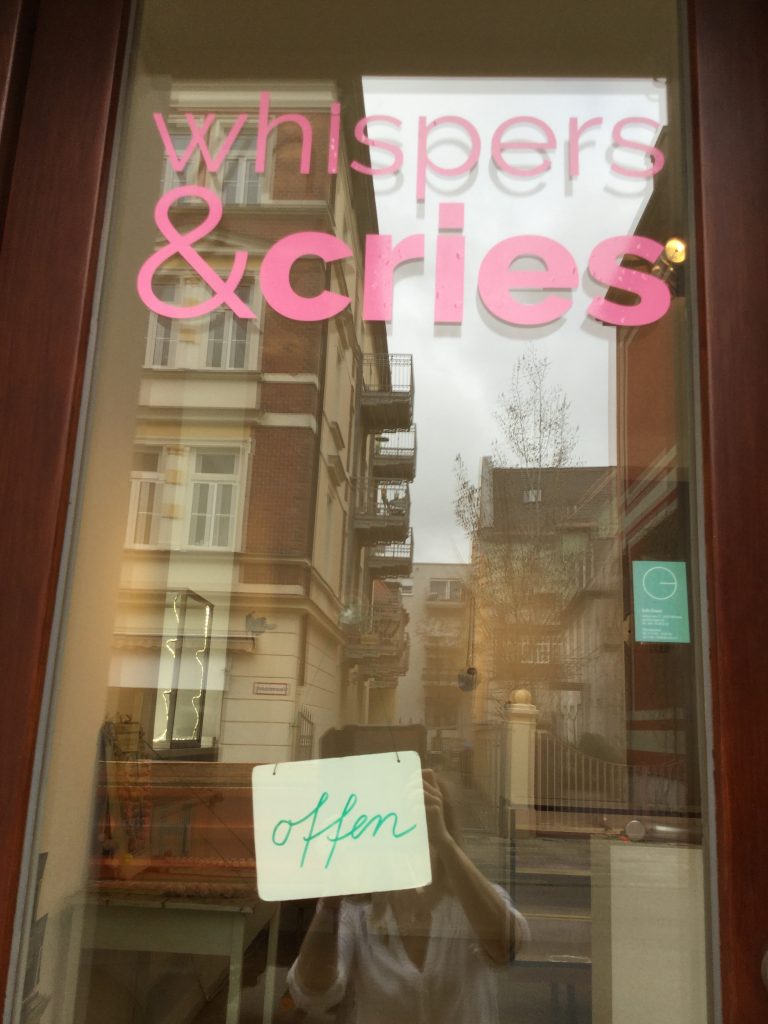 whispers
&cries
offen